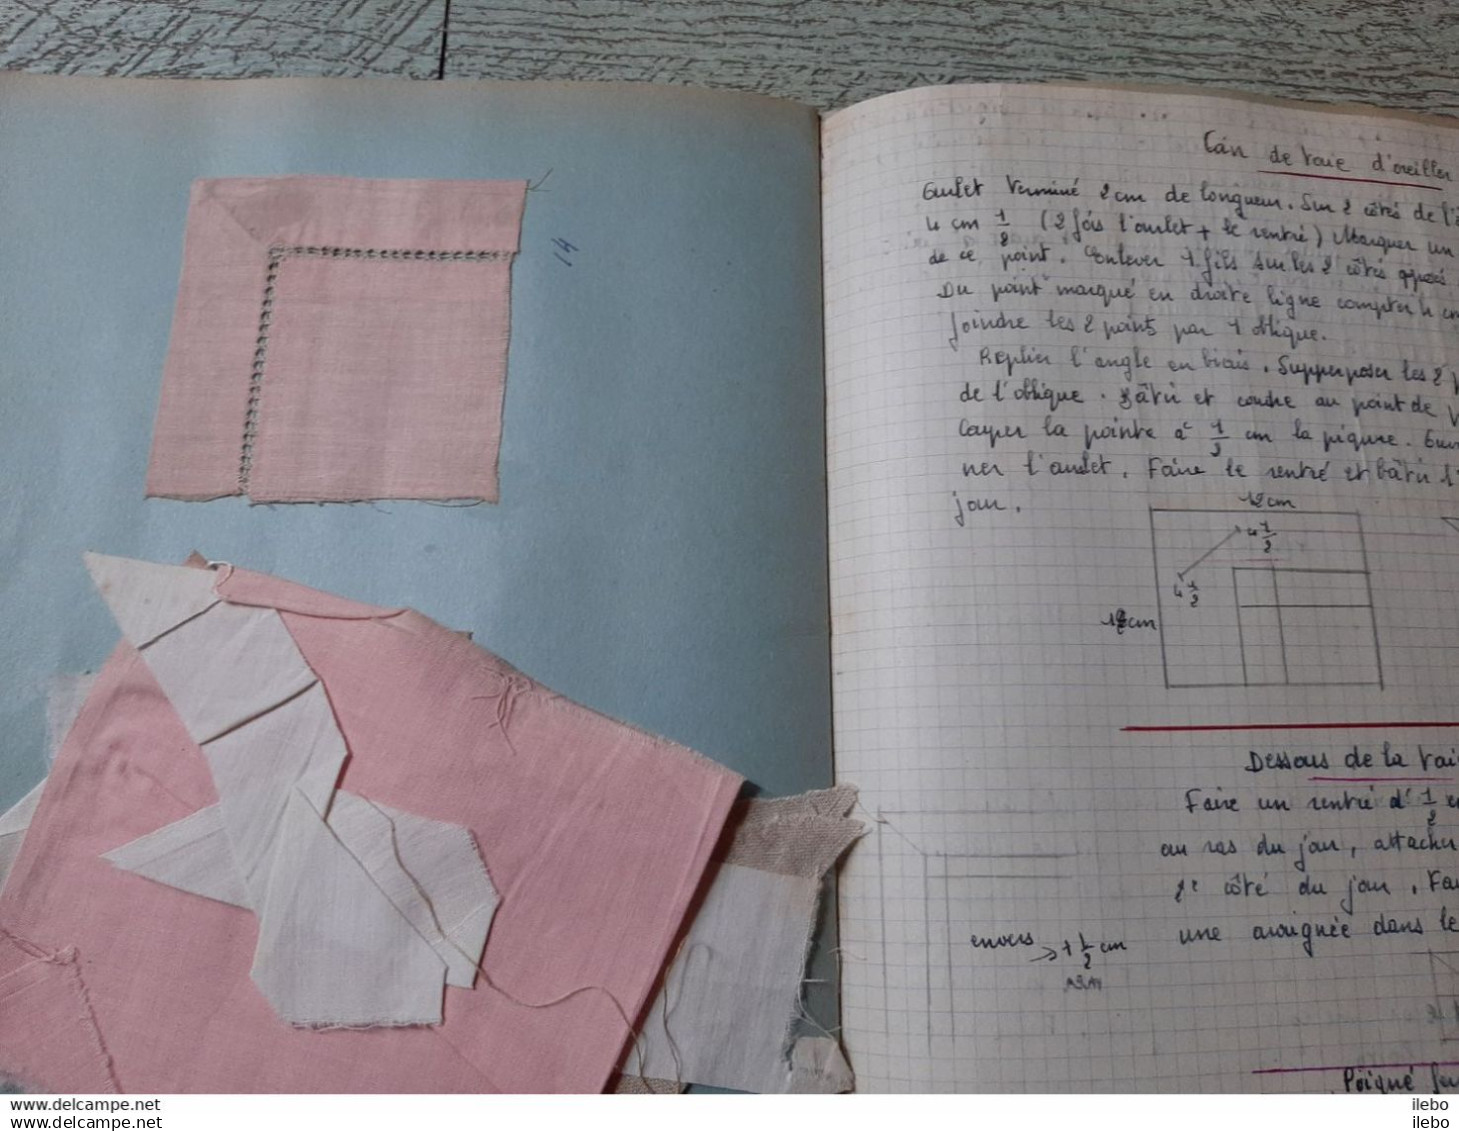 14
Coin de taie d'oreiller
Ourlet terminé 2 cm de longueur. Sur 2 côtés de l'
4 cm 1/2 (2 fois l'ourlet + le rentré) Marquer un
de ce point. Enlever 1 fils sur les 2 côtés opposés
Du point marqué en droite ligne compter 4 cm
Joindre les 2 points par 1 oblique.
Replier l'angle en biais. Supperposer les 2
de l'oblique. Bâtir et coudre au point de
Couper la pointe à 1/2 cm la piqure.
ner l'ourlet. Faire le rentré et bâtir l'
jour.
12 cm
4 1/2
4 1/2
12 cm
Dessous de la taie
Faire un rentré d' 1/2
au ras du jour, attacher
2e côté du jour.
envers 1/2 cm une araignée dans le
Poigné
www.delcampe.net
www.delcampe.net
ilebo
ilebo